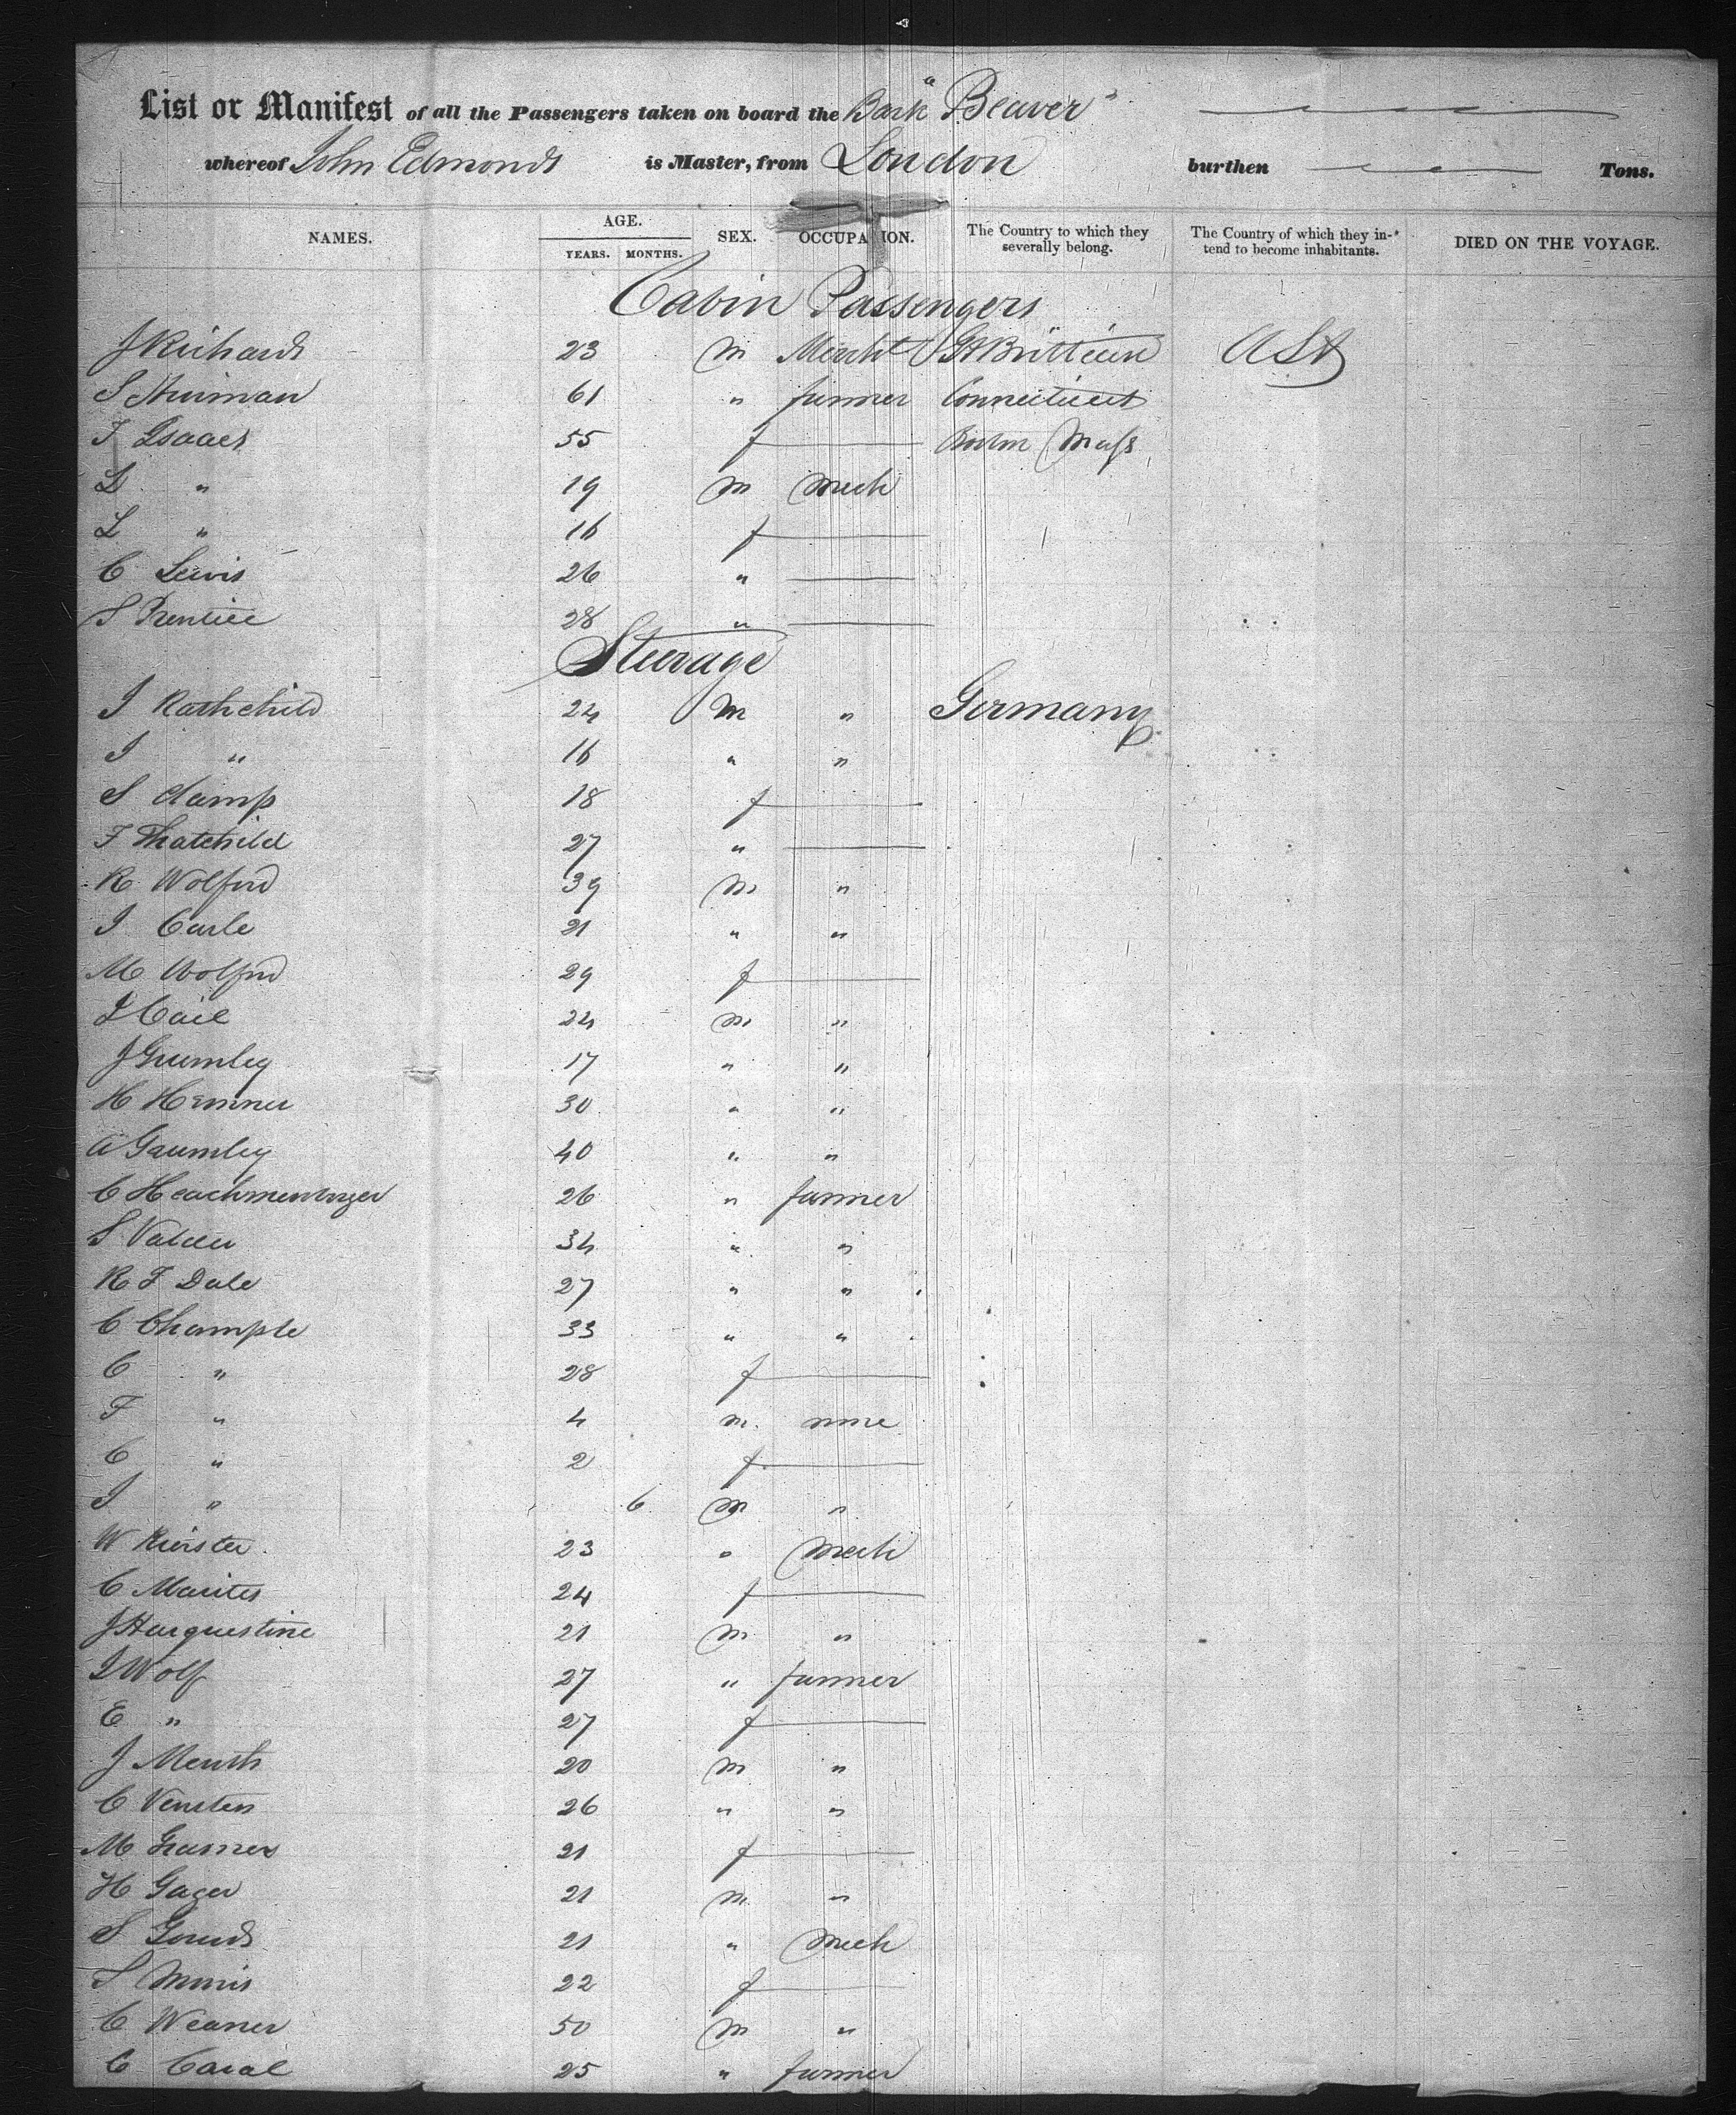 List or Manifest of all the Passengers taken on board the Bark "Beaver"
whereof John Edmonds is Master, from London burthen Tons.
NAMES. AGE. YEARS. MONTHS. SEX. OCCUPATION. The Country to which they severally belong. The Country of which they intend to become inhabitants. DIED ON THE VOYAGE.
Cabin Passengers
J Richards 23 m Mercht Gt Brittain
S 61 " farmer Connecticut
T Isaacs 55 f Boston Mass
L " 19 m Mech
L " 16 f
C Lewis 26 "
S Prentice 28 "
Steerage
I Rothchild 24 m " Germany
I " 16 " "
S Clamp 18 f
F Thatchild 27 "
R Wolford 39 m "
I Carle 21 " "
M Wolford 29 f
I Cail 24 m "
J Grumley 17 " "
H Hemner 30 " "
A Grumley 40 " "
C 26 " farmer
S 34 " "
R F Dale 27 " "
C Chample 33 " "
C " 28 f
F " 4 m none
C " 2 f
I " 6 m "
W 23 " Mech
C 24 f
J Harquestine 21 m "
I Wolf 27 " farmer
E " 27 f
J Menth 20 m "
C Vensten 26 " "
M 21 f
H Gager 21 m "
S 21 " Mech
S 22 f
C Weaner 50 m "
C Caral 25 " farmer